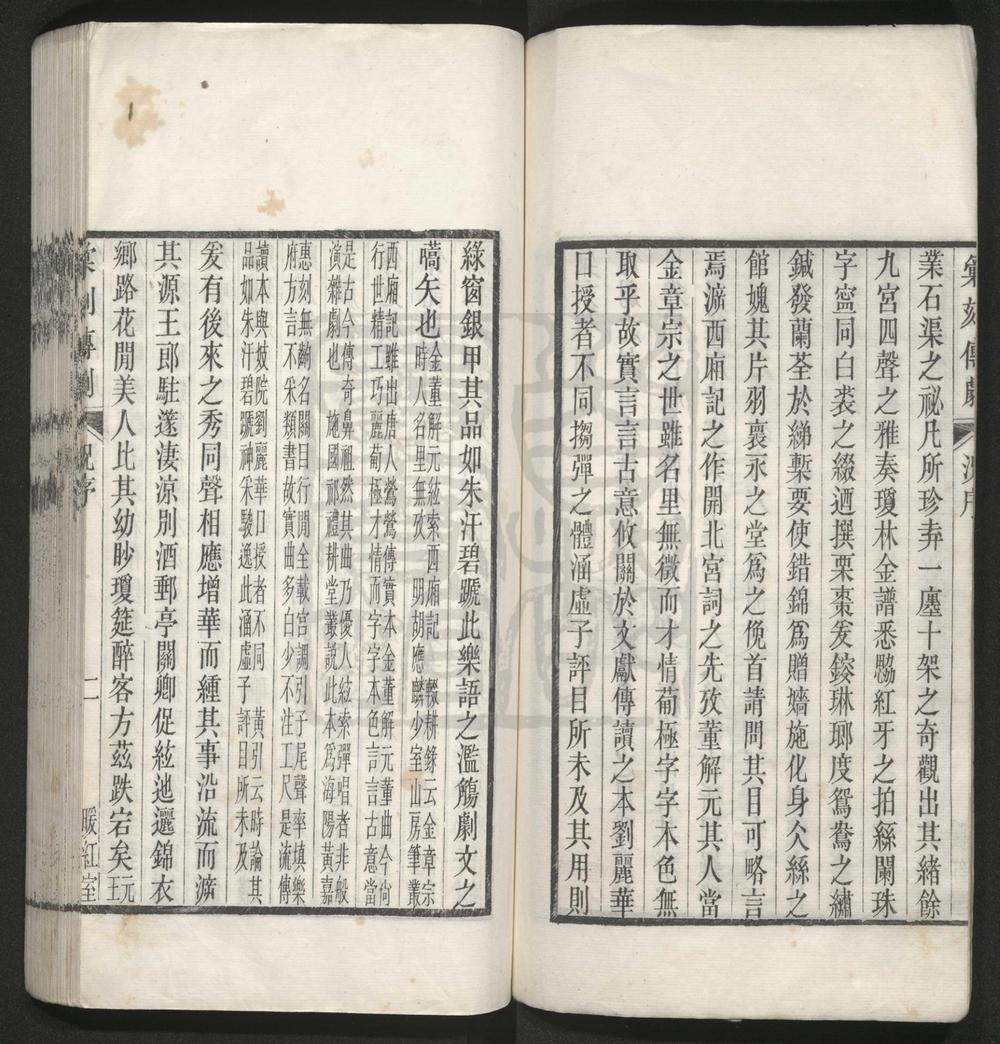 彙刻傳劇 況序
業石渠之祕凡所珍弆一廛十架之奇觀出其緒餘
九宮四聲之雅奏瓊林金譜悉勰紅牙之拍絲闌珠
字寍同白裘之綴迺撰栗棗爰錽琳瑯度鴛鴦之繡
鍼發蘭荃於綈槧要使錯錦爲贈嬙施化身仌絲之
館媿其片羽裛氶之堂爲之俛首請問其目可略言
焉㴑西廂記之作開北宮詞之先攷董解元其人當
金章宗之世雖名里無徵而才情葡極字字本色無
取乎故實言言古意攸關於文獻傳讀之本劉麗華
口授者不同搊彈之體涵虛子評目所未及其用則
綠窗銀甲其品如朱汗碧蹏此樂語之濫觴劇文之
蒿矢也金董解元絃索西廂記 輟耕錄云金章宗
時人名里無攷 明胡應麟少室山房筆叢
西廂記雖出唐人鶯鶯傳實本金董解元董曲今尙
行世精工巧麗葡極才情而字字本色言言古意當
是古今傳奇鼻祖然其曲乃優人絃索彈唱者非般
演雜劇也 施國祁禮耕堂叢說此本爲海陽黃嘉
惠刻無齣名關目行閒全載宮調引子尾聲率塡樂
府方言不采類書故實曲多白少不注工尺是流傳
讀本與妓院劉麗華口授者不同 黃引云時論其
品如朱汗碧蹏神采駿逸此涵虛子評目所未及
爰有後來之秀同聲相應增華而緟其事沿流而㴑
其源王郎駐邃淒涼別酒郵亭關卿促絃迆邐錦衣
鄉路花閒美人比其幼眇瓊筵醉客方茲跌宕矣元
王
彙刻傳劇 況序 二 暖紅室